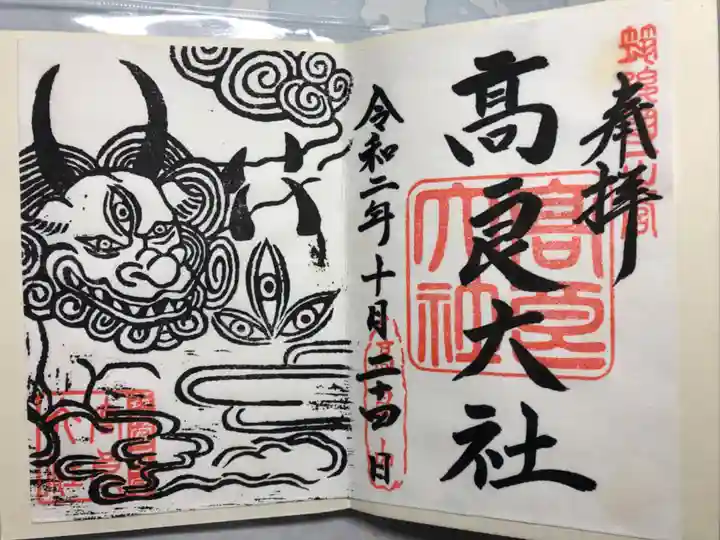 奉拝
髙良大社
令和二年十月二十四日
髙良
大社